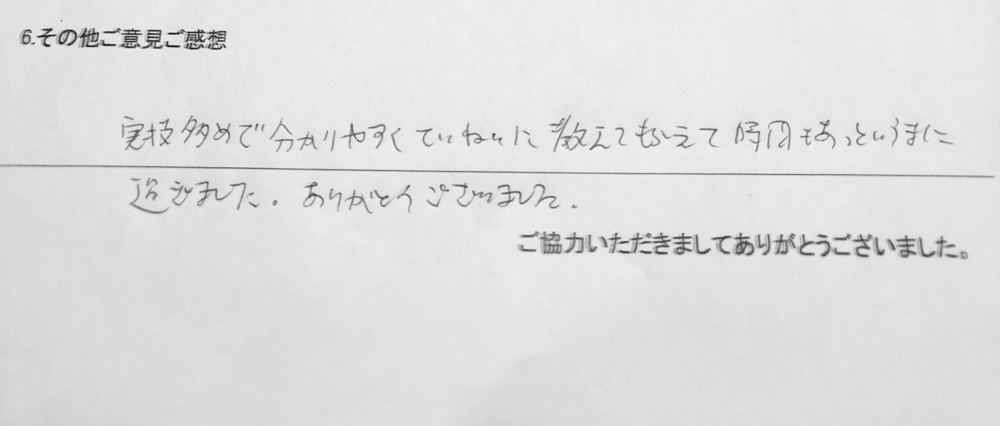 6.その他ご意見ご感想
実技多めで分かりやすくていねいに教えてもらえて時間もあっというまに
過ぎました。ありがとうございました。
ご協力いただきましてありがとうございました。